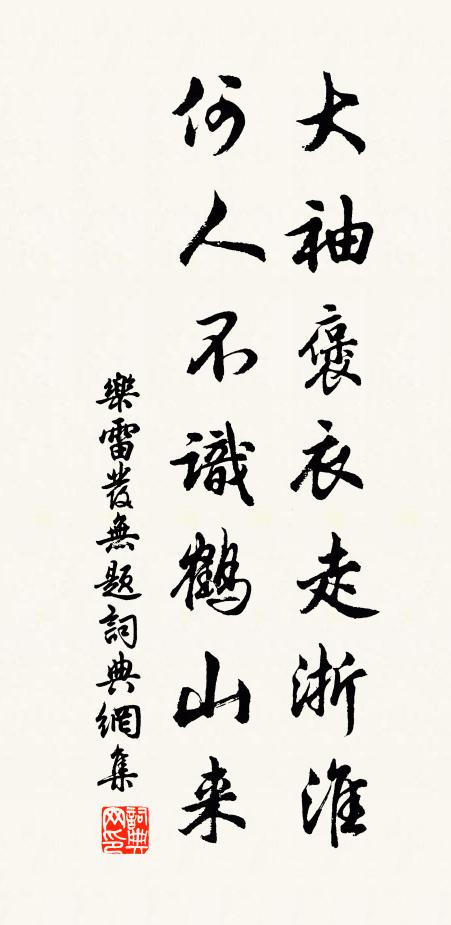 大袖褒衣走浙淮
何人不識鶴山来
樂雷發無題詞典網集
詞典網印